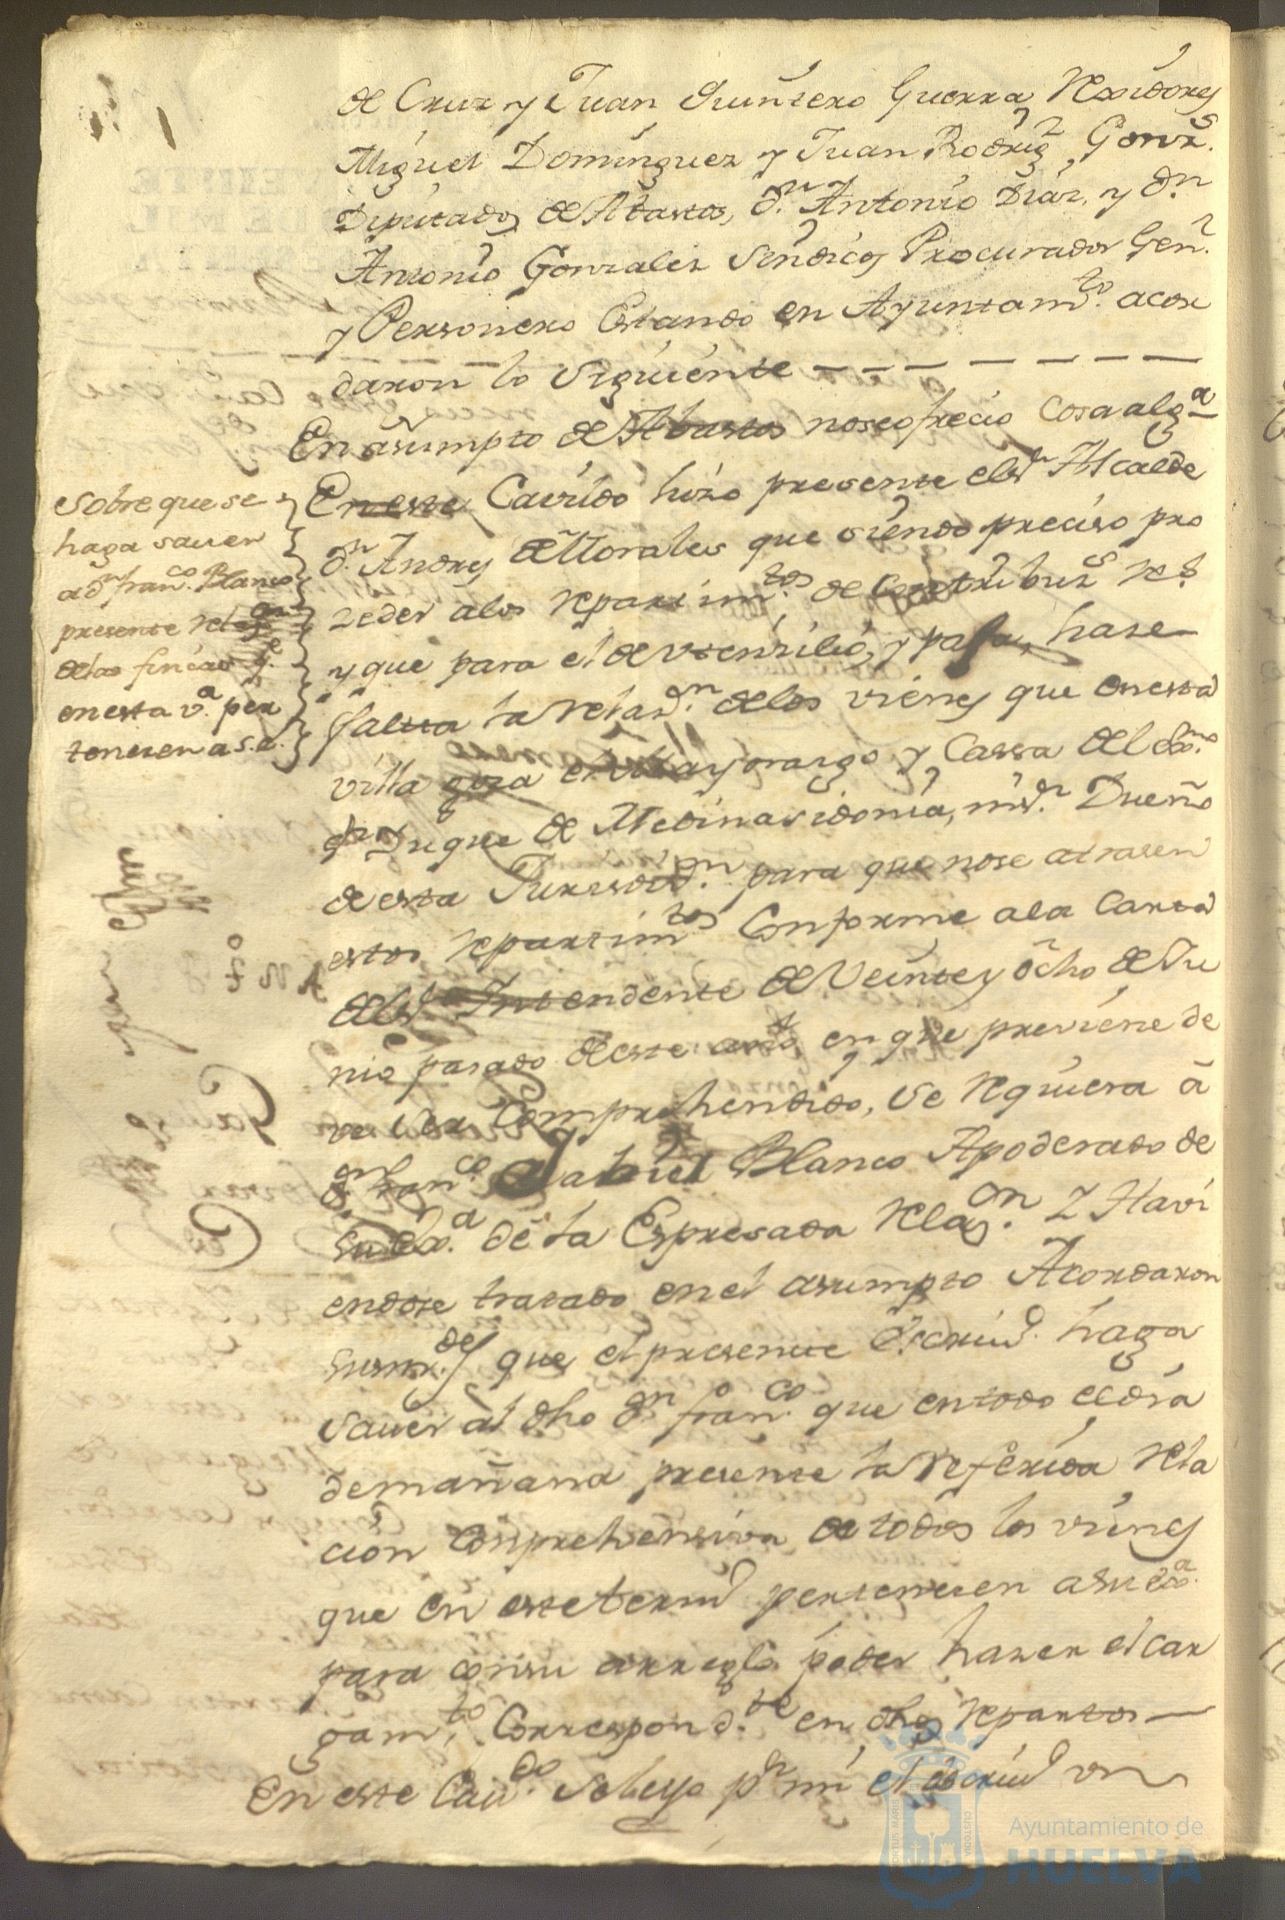 de Cruz y Juan Quintero Guerra Rexidores
Miguel Dominguez y Juan Rodrig.z Gonz.s
Diputados de Abastos, d.n Antonio Diaz, y d.n
Antonio Gonzalez Sindicos Procurador Gen.l
y Personero Estando en Ayuntam.to acor
daron lo siguiente
En asumpto de Abastos no se ofrecio Cosa alg.a
En este Cavildo hizo presente el s.r Alcalde
d.n Andres de Morales que siendo preciso pro
zeder a los repartim.tos de Contribuz.s R.s
y que para el de Utensilios, y paja, haze
falta la relaz.n de los vienes que en esta
villa goza el Mayorazgo y Cassa del Ex.mo
s.or Duque de Medinasidonia, mi s.r Dueño
de esta Juresdiz.n para que no se atrasen
estos repartim.tos Conforme a la Carta
del s.r Intendente de Veinte y ocho de Ju
nio pasado de este año, en que previene de
ve ser Comprehendido, se requiera á
d.n Fran.co Gabriel Blanco Apoderado de
su Ex.a de la Espresada relaz.n Y Havi
endose tratado en el asumpto Acordaron
sus m.des que el presente Escriv.o haga
saver al dho d.n Fran.co que en todo el dia
de mañana presente la referida rela
cion comprehensiva de todos los vienes
que en este term.o pertenesen a su Ex.a
para con su arreglo poder hazer el car
gam.to Correspond.te en dhos repartos
En este Cav.do se leyo p.r mi el escriv.o un
Sobre que se
haga saver
a d.n Fran.co Blanco
presente relaz.on
de las fincas q.e
en esta v.a per
tenesen a S.E.
Ayuntamiento de
HUELVA